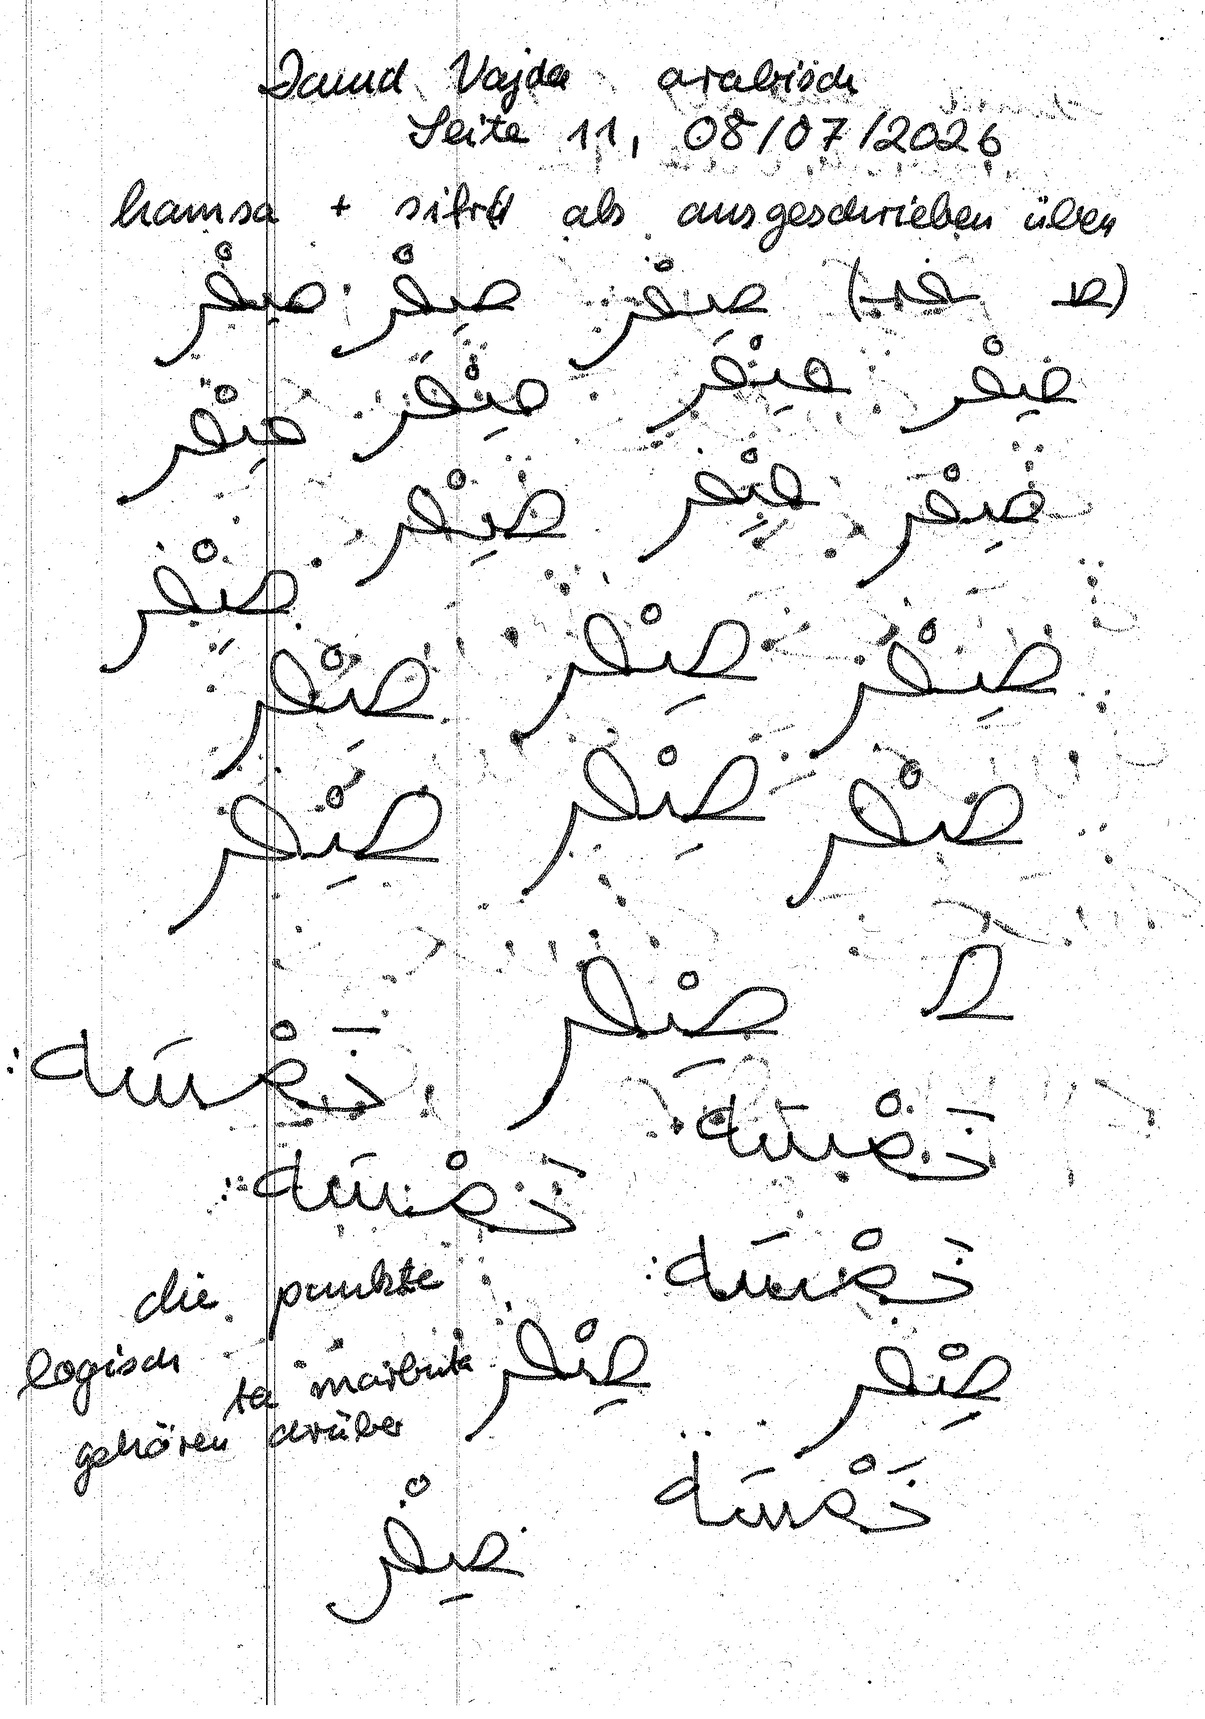 David Vajda arabisch
Seite 11, 08/07/2026
hamsa + sifr als ausgeschrieben üben
صِفْر صِفْر صِفْر
صِفْر صِفْر صِفْر صِفْر
صِفْر صِفْر صِفْر
صِفْر
صِفْر صِفْر صِفْر
صِفْر صِفْر صِفْر
صِفْر
خَمْسَة
خَمْسَة
خَمْسَة
خَمْسَة
die punkte
logisch
ta marbuta
gehören drüber
صِفْر صِفْر
خَمْسَة
صِفْر